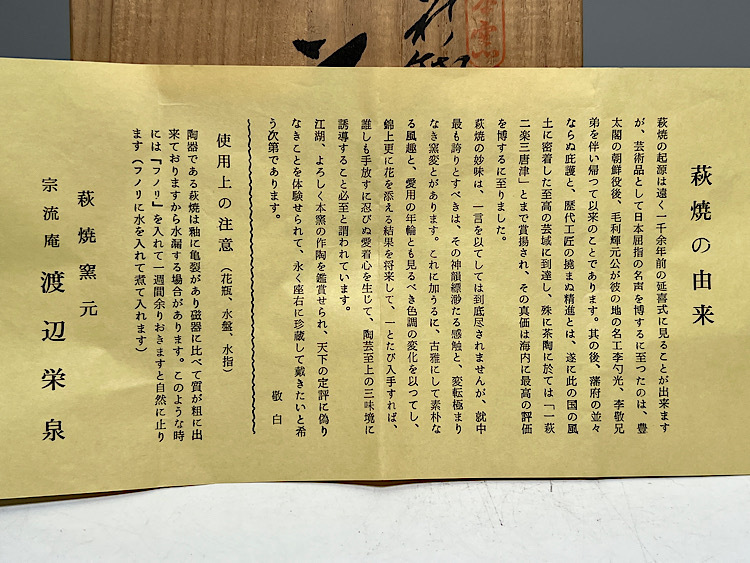 萩焼の由来
萩焼の起源は遠く一千余年前の延喜式に見ることが出来ます
が、芸術品として日本屈指の名声を博するに至つたのは、豊
太閤の朝鮮役後、毛利輝元公が彼の地の名工李勺光、李敬兄
弟を伴い帰つて以来のことであります。其の後、藩府の並々
ならぬ庇護と、歴代工匠の撓まぬ精進とは、遂に此の国の風
土に密着した至高の芸域に到達し、殊に茶陶に於ては「一萩
二楽三唐津」とまで賞揚され、その真価は海内に最高の評価
を博するに至りました。
萩焼の妙味は、一言を以てしては到底尽されませんが、就中
最も誇りとすべきは、その神韻縹渺たる感触と、変転極まり
なき窯変とがあります。これに加うるに、古雅にして素朴な
る風趣と、愛用の年輪とも見るべき色調の変化を以つてし、
錦上更に花を添える結果を将来して、一とたび入手すれば、
誰しも手放すに忍びぬ愛着心を生じて、陶芸至上の三昧境に
誘導すること必至と謂われています。
江湖、よろしく本窯の作陶を鑑賞せられ、天下の定評に偽り
なきことを体験せられて、永く座右に珍蔵して戴きたいと希
う次第であります。
敬白
使用上の注意（花瓶、水盤、水指）
陶器である萩焼は釉に亀裂があり磁器に比べて質が粗に出
来ておりますから水漏する場合があります。このような時
には『フノリ』を入れて一週間余りおきますと自然に止り
ます（フノリに水を入れて煮て入れます）
萩焼窯元
宗流庵 渡辺栄泉